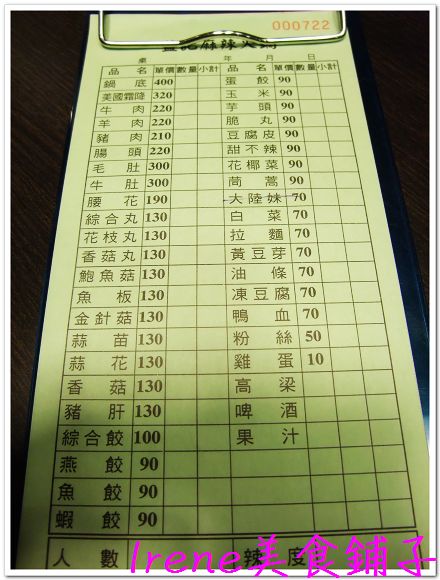 000722
麻辣火鍋
桌 年 月 日
品名 單價 數量 小計 品名 單價 數量 小計
鍋底 400 蛋餃 90
美國霜降 320 玉米 90
牛肉 220 芋頭 90
羊肉 220 脆丸 90
豬肉 210 豆腐皮 90
腸頭 220 甜不辣 90
毛肚 300 花椰菜 90
牛肚 300 茼蒿 90
腰花 190 大陸妹 70
綜合丸 130 白菜 70
花枝丸 130 拉麵 70
香菇丸 130 黃豆芽 70
鮑魚菇 130 油條 70
魚板 130 凍豆腐 70
金針菇 130 鴨血 70
蒜苗 130 粉絲 50
蒜花 130 雞蛋 10
香菇 130 高梁
豬肝 130 啤酒
綜合餃 100 果汁
燕餃 90
魚餃 90
蝦餃 90
人數 辣度
Irene美食鋪子